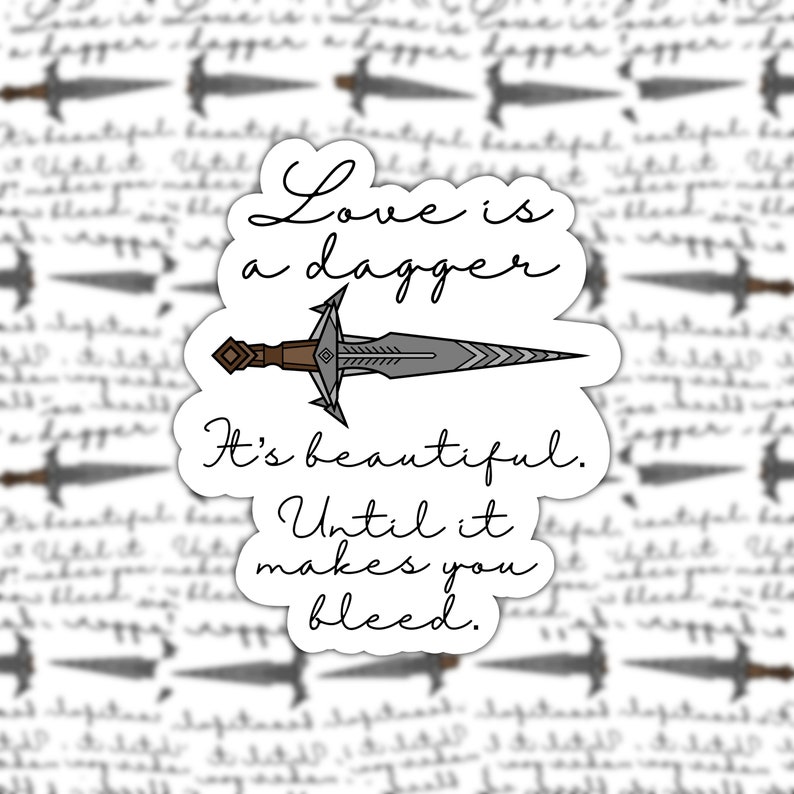 Love is
a dagger
It's beautiful.
Until it
makes you
bleed.